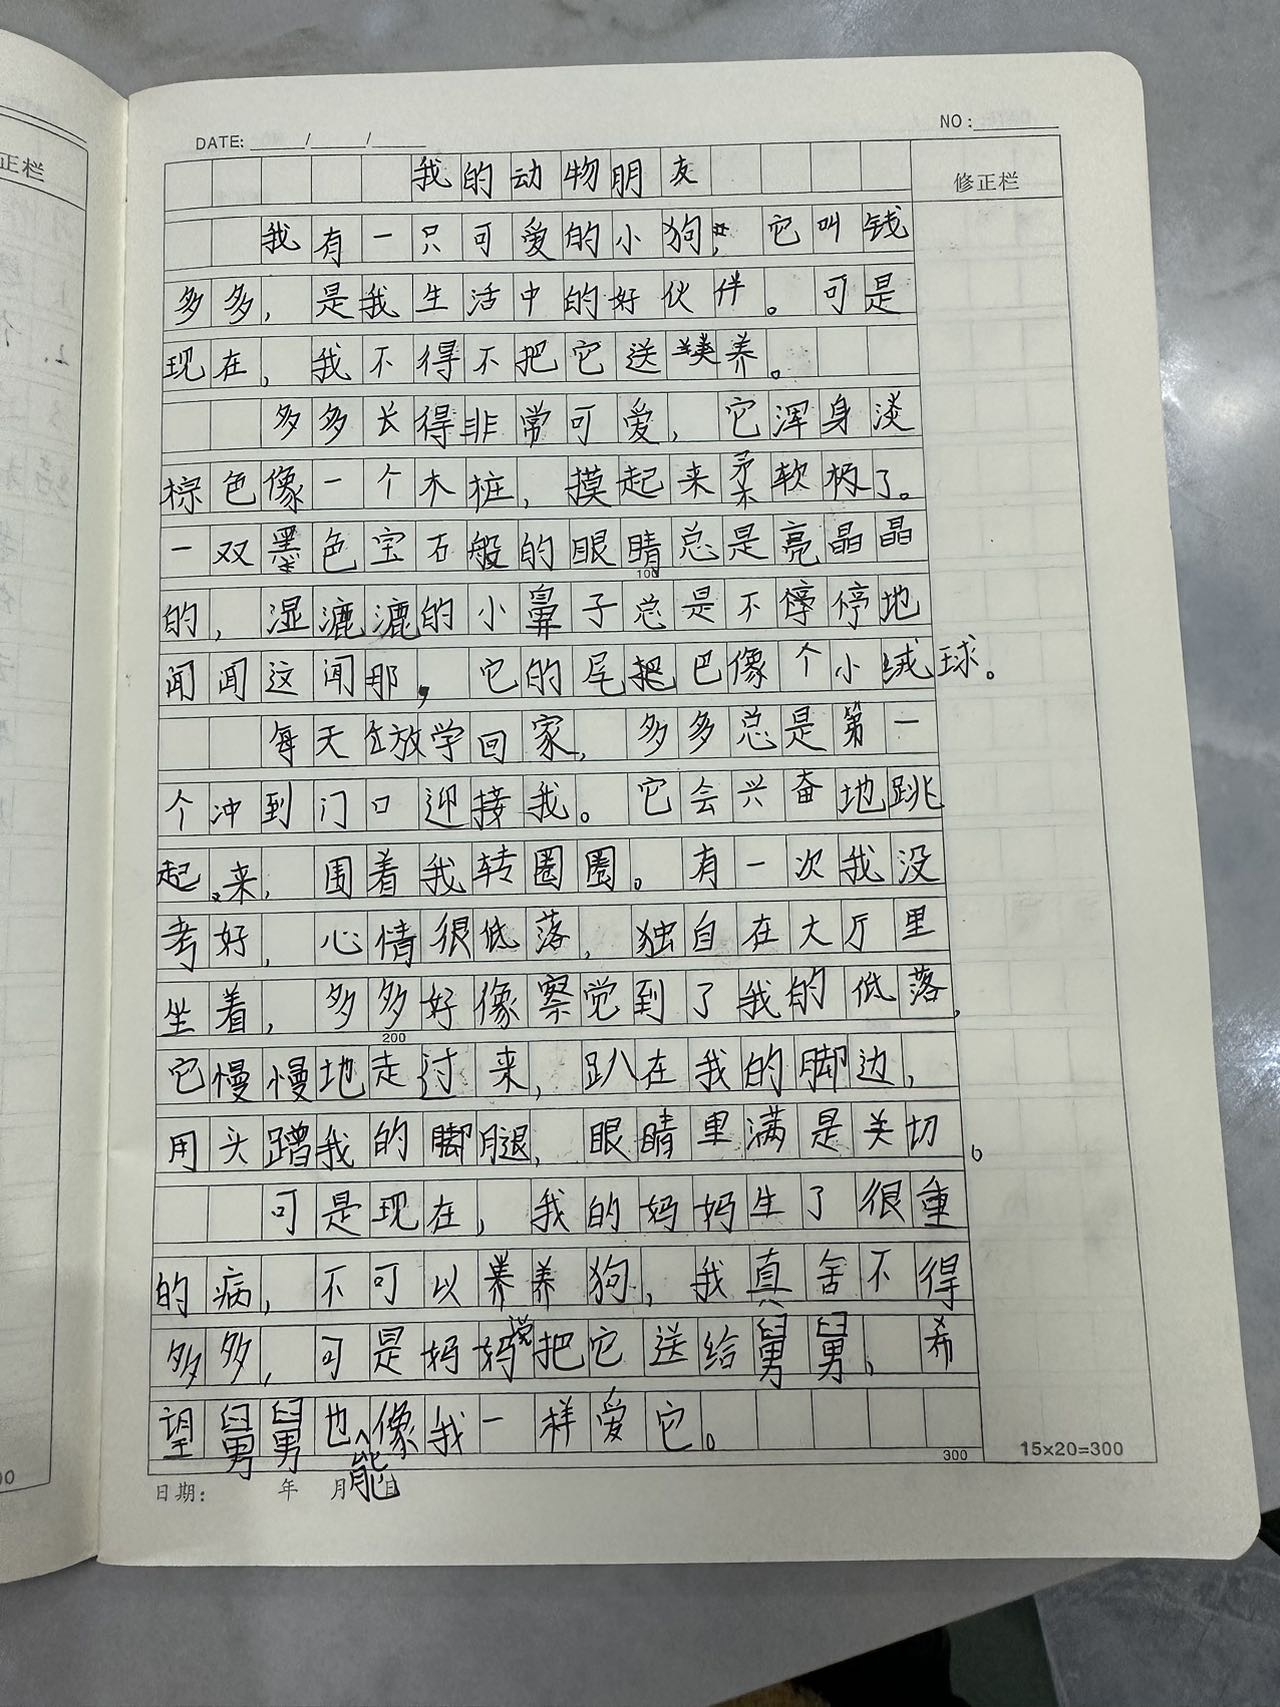 正栏
DATE: / /
NO:
我的动物朋友
修正栏
我有一只可爱的小狗，它叫钱
多多，是我生活中的好伙伴。可是
现在，我不得不把它送养。
多多长得非常可爱，它浑身淡
棕色像一个木桩，摸起来柔软极了。
一双墨色宝石般的眼睛总是亮晶晶
100
的，湿漉漉的小鼻子总是不停停地
闻闻这闻那，它的尾把巴像个小绒球。
每天在放学回家，多多总是第一
个冲到门口迎接我。它会兴奋地跳
起来，围着我转圈圈。有一次我没
考好，心情很低落，独自在大厅里
坐着，多多好像察觉到了我的低落，
200
它慢慢地走过来，趴在我的脚边，
用头蹭我的脚腿，眼睛里满是关切。
可是现在，我的妈妈生了很重
的病，不可以养养狗，我真舍不得
多多，可是妈妈说把它送给舅舅，希
望舅舅也能像我一样爱它。
300
15×20=300
00
日期： 年 月 日